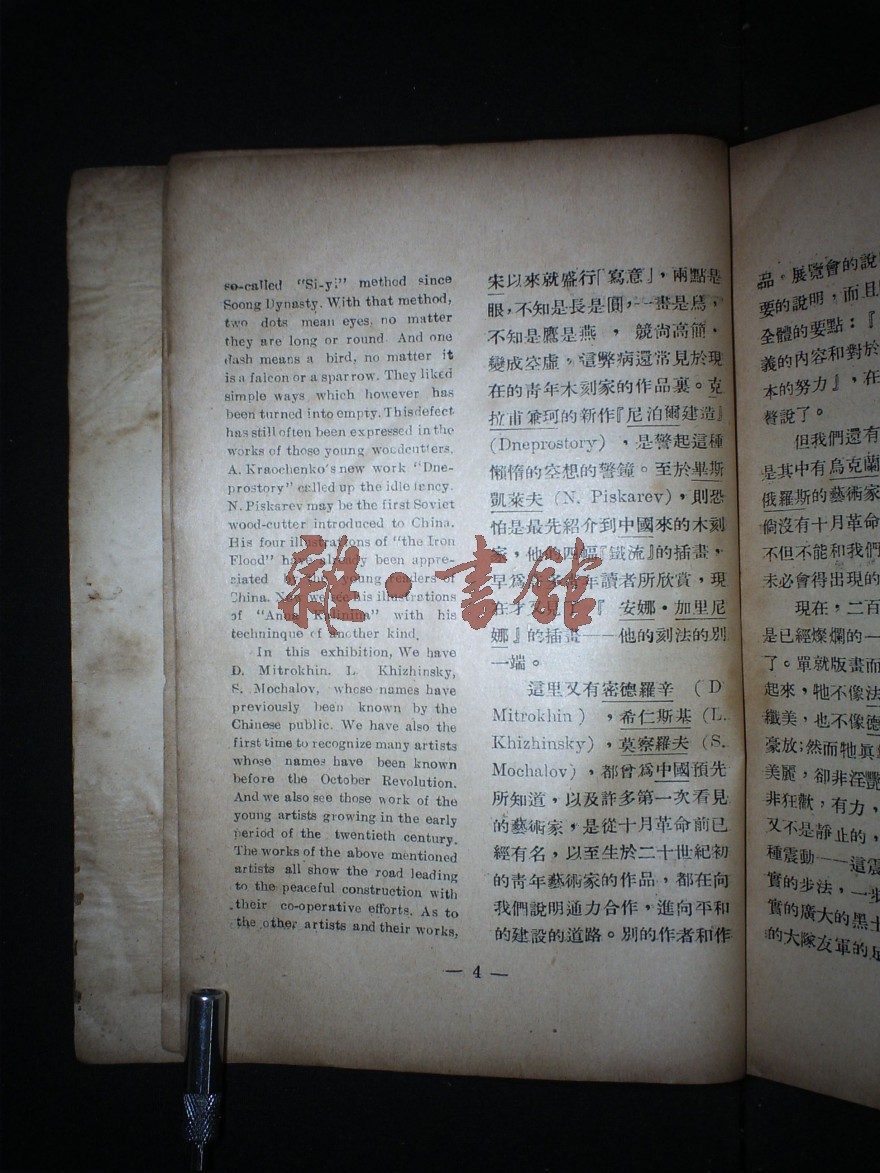 so-called "Si-yi" method since
Soong Dynasty. With that method,
two dots mean eyes, no matter
they are long or round. And one
dash means a bird, no matter it
is a falcon or a sparrow. They liked
simple ways which however has
been turned into empty. This defect
has still often been expressed in the
works of those young woodcutters.
A. Kraochenko's new work "Dne-
prostory" called up the idle fancy.
N. Piskarev may be the first Soviet
wood-cutter introduced to China.
His four illustrations of "the Iron
Flood" have already been appre-
ciated by the young readers of
China. Now we see his illustrations
of "Anna Kalinina" with his
techninque of another kind.
In this exhibition, We have
D. Mitrokhin. L. Khizhinsky,
S. Mochalov, whose names have
previously been known by the
Chinese public. We have also the
first time to recognize many artists
whose names have been known
before the October Revolution.
And we also see those work of the
young artists growing in the early
period of the twentieth century.
The works of the above mentioned
artists all show the road leading
to the peaceful construction with
their co-operative efforts. As to
the other artists and their works,
宋以來就盛行「寫意」，兩點是
眼，不知是長是圓，一畫是鳥，
不知是鷹是燕，競尚高簡，
變成空虛。這弊病還常見於現
在的青年木刻家的作品裏。克
拉甫兼珂的新作『尼泊爾建造』
(Dneprostory)，是警起這種
懶惰的空想的警鐘。至於畢斯
凱萊夫 (N. Piskarev)，則恐
怕是最先紹介到中國來的木刻
家，他的四幅『鐵流』的插畫，
早爲許多青年讀者所欣賞，現
在才又見了『安娜·加里尼
娜』的插畫——他的刻法的別
一端。
這里又有密德羅辛 (D
Mitrokhin)，希仁斯基 (L.
Khizhinsky)，莫察羅夫 (S.
Mochalov)，都曾爲中國預先
所知道，以及許多第一次看見
的藝術家，是從十月革命前已
經有名，以至生於二十世紀初
的青年藝術家的作品，都在向
我們說明通力合作，進向平和
的建設的道路。別的作者和作
— 4 —
品，展覽會的說
要的說明，而且
全體的要點：『
義的內容和對於
本的努力』，在
聲說了。
但我們還有
是其中有烏克蘭
俄羅斯的藝術家
倘沒有十月革命
不但不能和我們
未必會得出現的
現在，二百
是已經燦爛的一
了。單就版畫而
起來，牠不像法
纖美，也不像德
豪放；然而牠眞
美麗，卻非淫艷
非狂歡，有力，
又不是靜止的，
種震動——這震
實的步法，一步
實的廣大的黑土
的大隊友軍的足
雜·書館